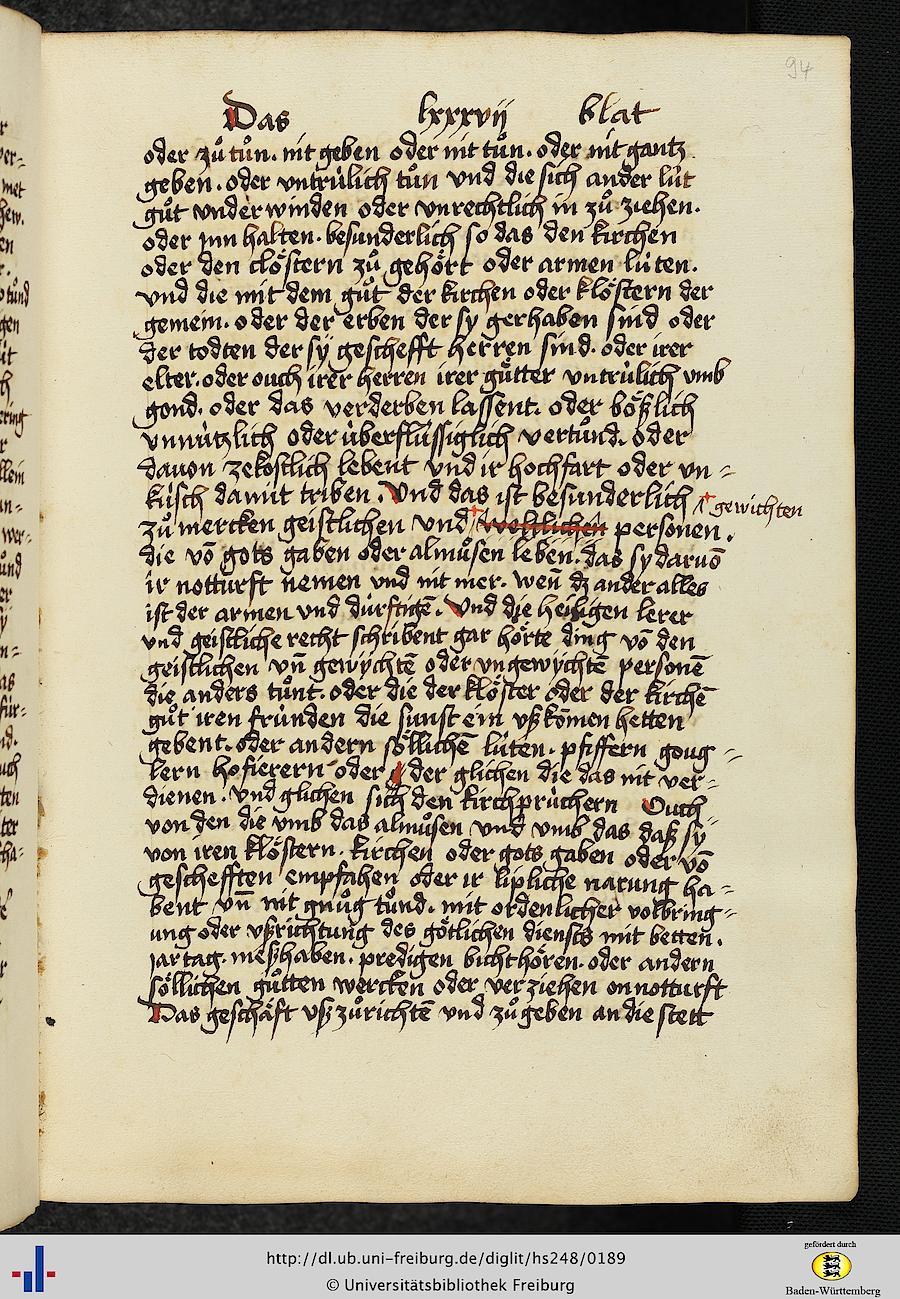 94
Das lxxxvij blat
oder zuͦ tuͦn. nit geben oder nit tuͦn. oder nit gantz
geben. oder vntrülich tuͦn vnd die sich ander lüt
guͦt vnderwinden oder vnrechtlich in zuͦ ziehen.
oder jnn halten. besunderlich so das den kirchen
oder den clöstern zuͦ gehört oder armen lüten.
vnd die mit dem guͦt der kirchen oder klöstern der
gemein. oder der erben der sy gerhaben sind oder
der todten der sy geschefft herren sind. oder irer
elter. oder ouch irer herren irer guͤtter vntrülich vmb
gond. oder das verderben lassent. oder bößlich
vnnützlich oder überflüssiglich vertuͦnd. oder
dauon zekostlich lebent vnd ir hochfart oder vn=
küsch damit triben. Vnd das ist besunderlich
† gewichten
zuͦ mercken geistlichen vnd † weltlichen personen.
die vō gots gaben oder almuͦsen leben. das sy daruō
ir notturft nemen vnd nit mer. wen̄ dz ander alles
ist der armen vnd dürftigē. Vnd die heiligen lerer
vnd geistliche recht schribent gar hörte ding vō den
geistlichen vn̄ gewychtē oder vngewychtē personē
die anders tuͦnt. oder die der klöster oder der kirchē
guͦt iren fründen die sunst ein vßkōmen hetten
gebent. oder andern söllichē lüten. pfiffern goug=
lern hofierern oder der glichen die das nit ver=
dienen. Vnd glichen sich den kirchprüchern Ouch
von den die vmb das almuͦsen vnd vmb das daß sy
von iren klöstern. kirchen oder gots gaben oder vō
geschefften empfahen oder ir lipliche narung ha=
bent vn̄ nit gnuͦg tuͦnd. mit ordenlicher volbring=
ung oder vßrichtung des götlichen diensts mit betten.
jartag. meßhaben. predigen bicht hören. oder andern
söllichen guͦtten wercken oder verziehen on notturft
Das geschäft vß zuͦrichtē vnd zuͦ geben an die stett
http://dl.ub.uni-freiburg.de/diglit/hs248/0189
© Universitätsbibliothek Freiburg
gefördert durch
Baden-Württemberg